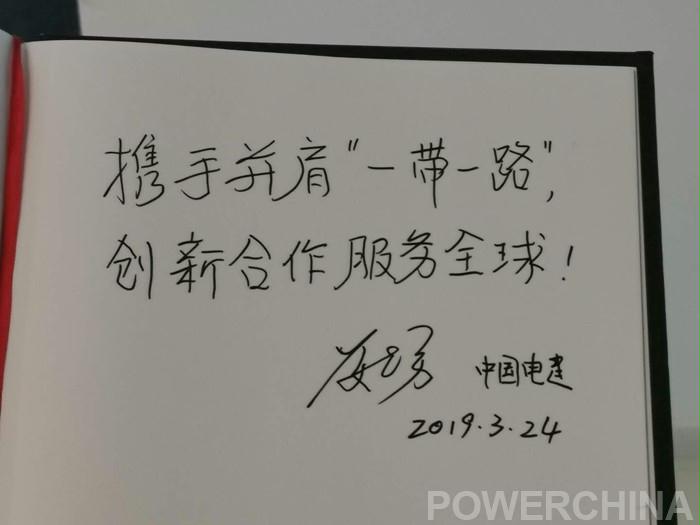 携手并肩“一带一路”，
创新合作服务全球！
中国电建
2019.3.24
POWERCHINA